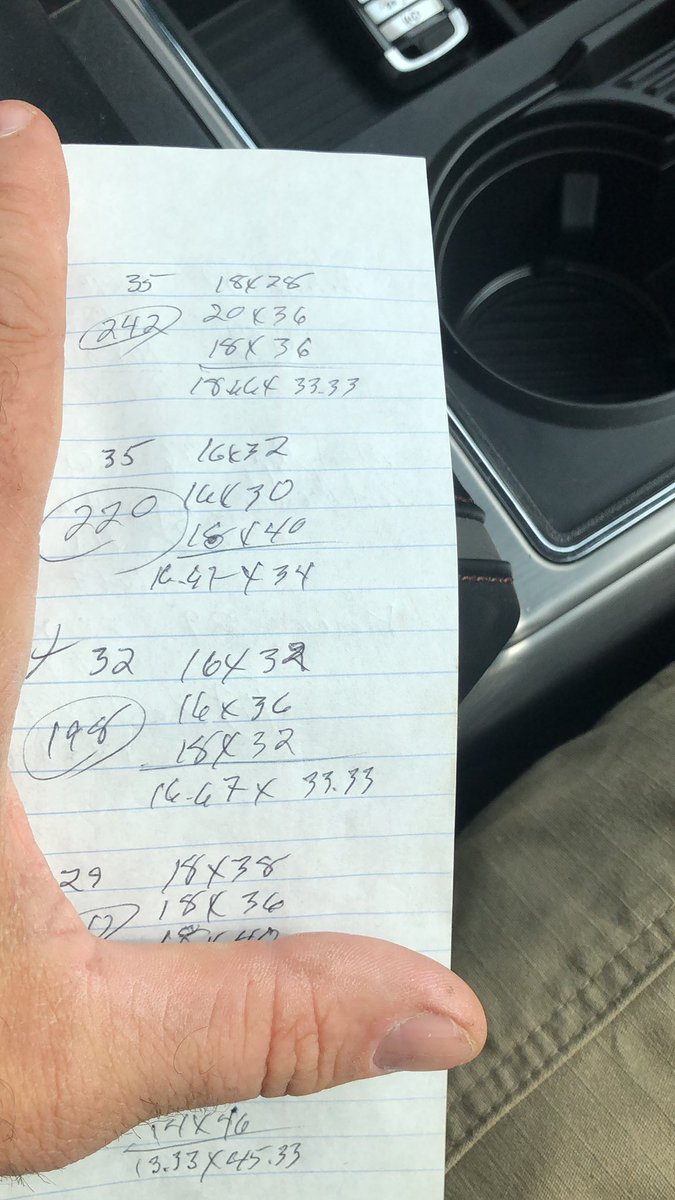 35 18x28
242 20x36
18x36
18.64x 33.33
35 16x32
220 16x30
18x40
16.67x34
x 32 16x32
198 16x36
18x32
16.67x 33.33
29 18x38
18x36
18x40
14x46
13.33x45.33